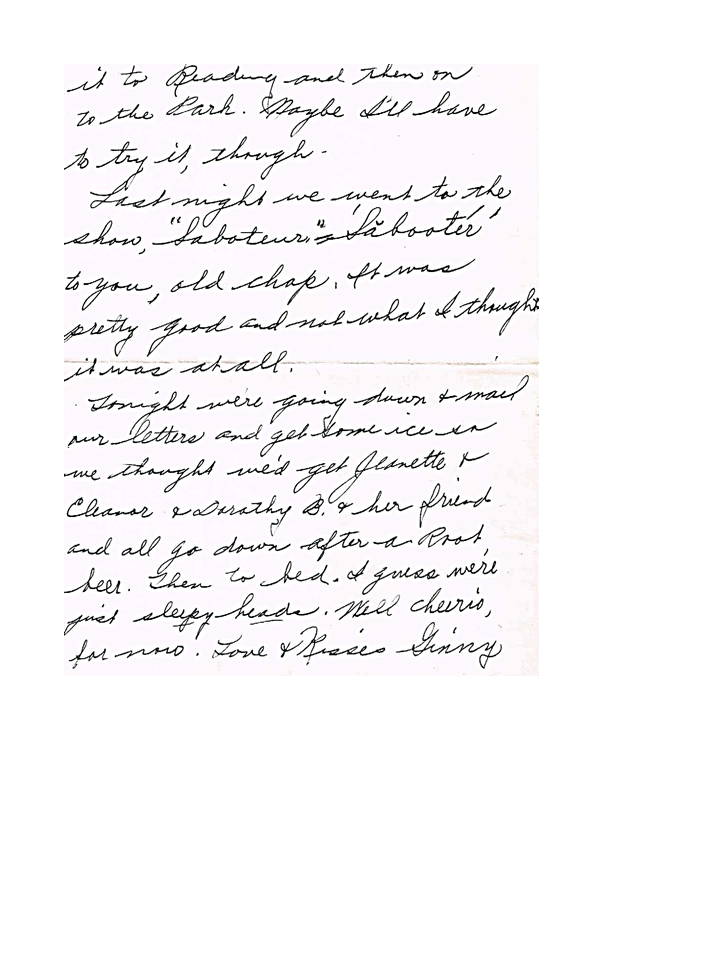 it to Reading and then on
to the Park. Maybe I'll have
to try it, though.
Last night we went to the
show, "Saboteur," = 'Săbootér'
to you, old chap. It was
pretty good and not what I thought
it was at all.
Tonight we're going down & mail
our letters and get some ice so
we thought we'd get Jeanette &
Eleanor & Dorothy B. & her friend
and all go down after a Root
beer. Then to bed. I guess we're
just sleepy heads. Well cheerio,
for now. Love & Kisses Ginny